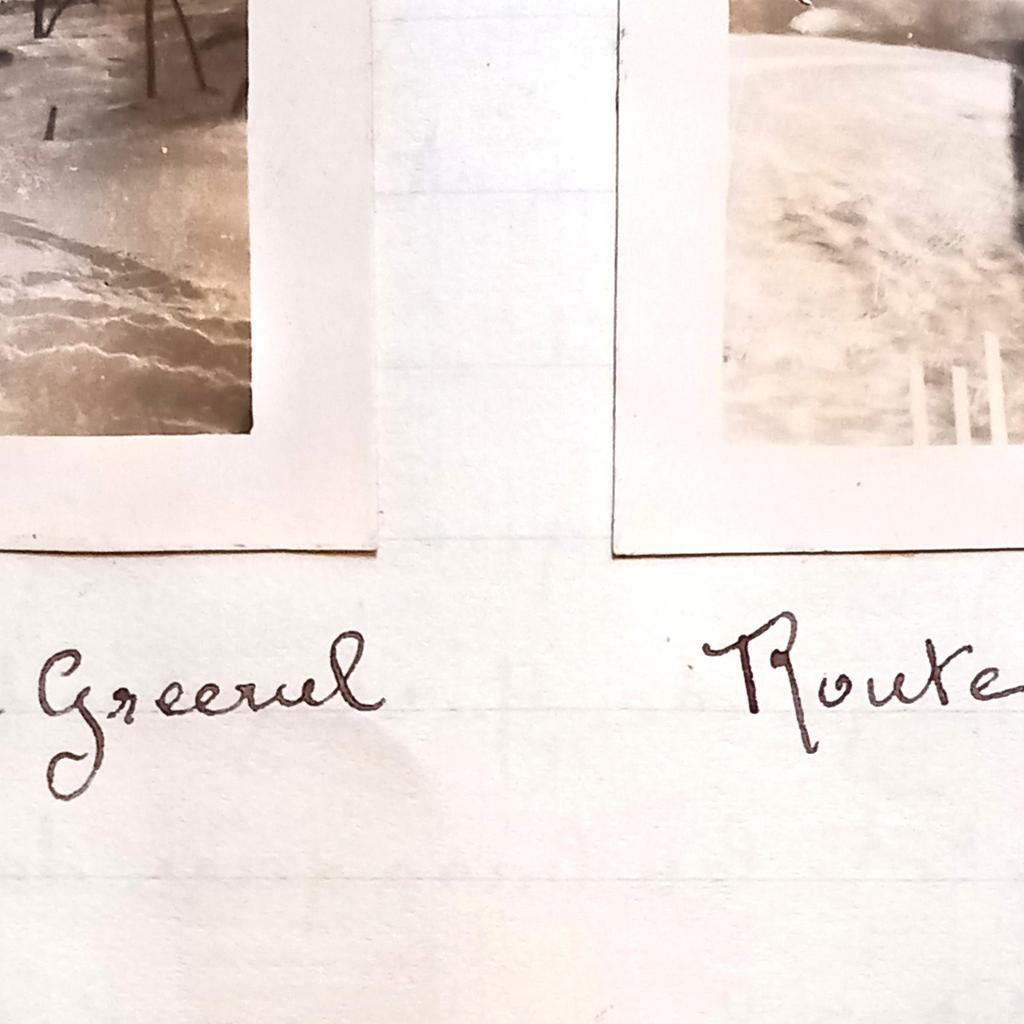 Greerul Route